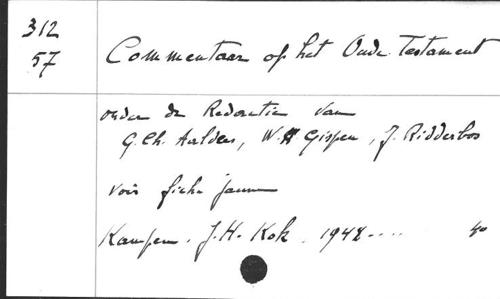 312
57
Commentaar op het Oude Testament
onder de Redaktie van
G. Ch. Aalders, W. H Gispen, J. Ridderbos
voir fiche jaune
Kampen. J. H. Kok. 1948....